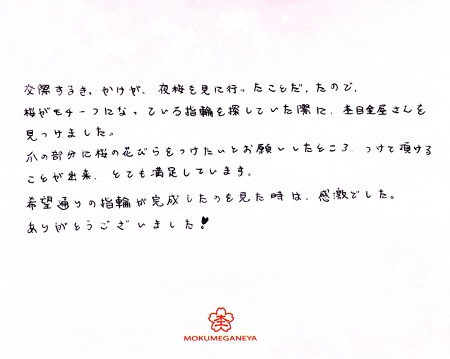 交際するきっかけが、夜桜を見に行ったことだったので、
桜がモチーフになっている指輪を探していた際に、杢目金屋さんを
見つけました。
爪の部分に桜の花びらをつけたいとお願いしたところ、つけて頂ける
ことが出来、とても満足しています。
希望通りの指輪が完成したのを見た時は、感激でした。
ありがとうございました!
杢
MOKUMEGANEYA